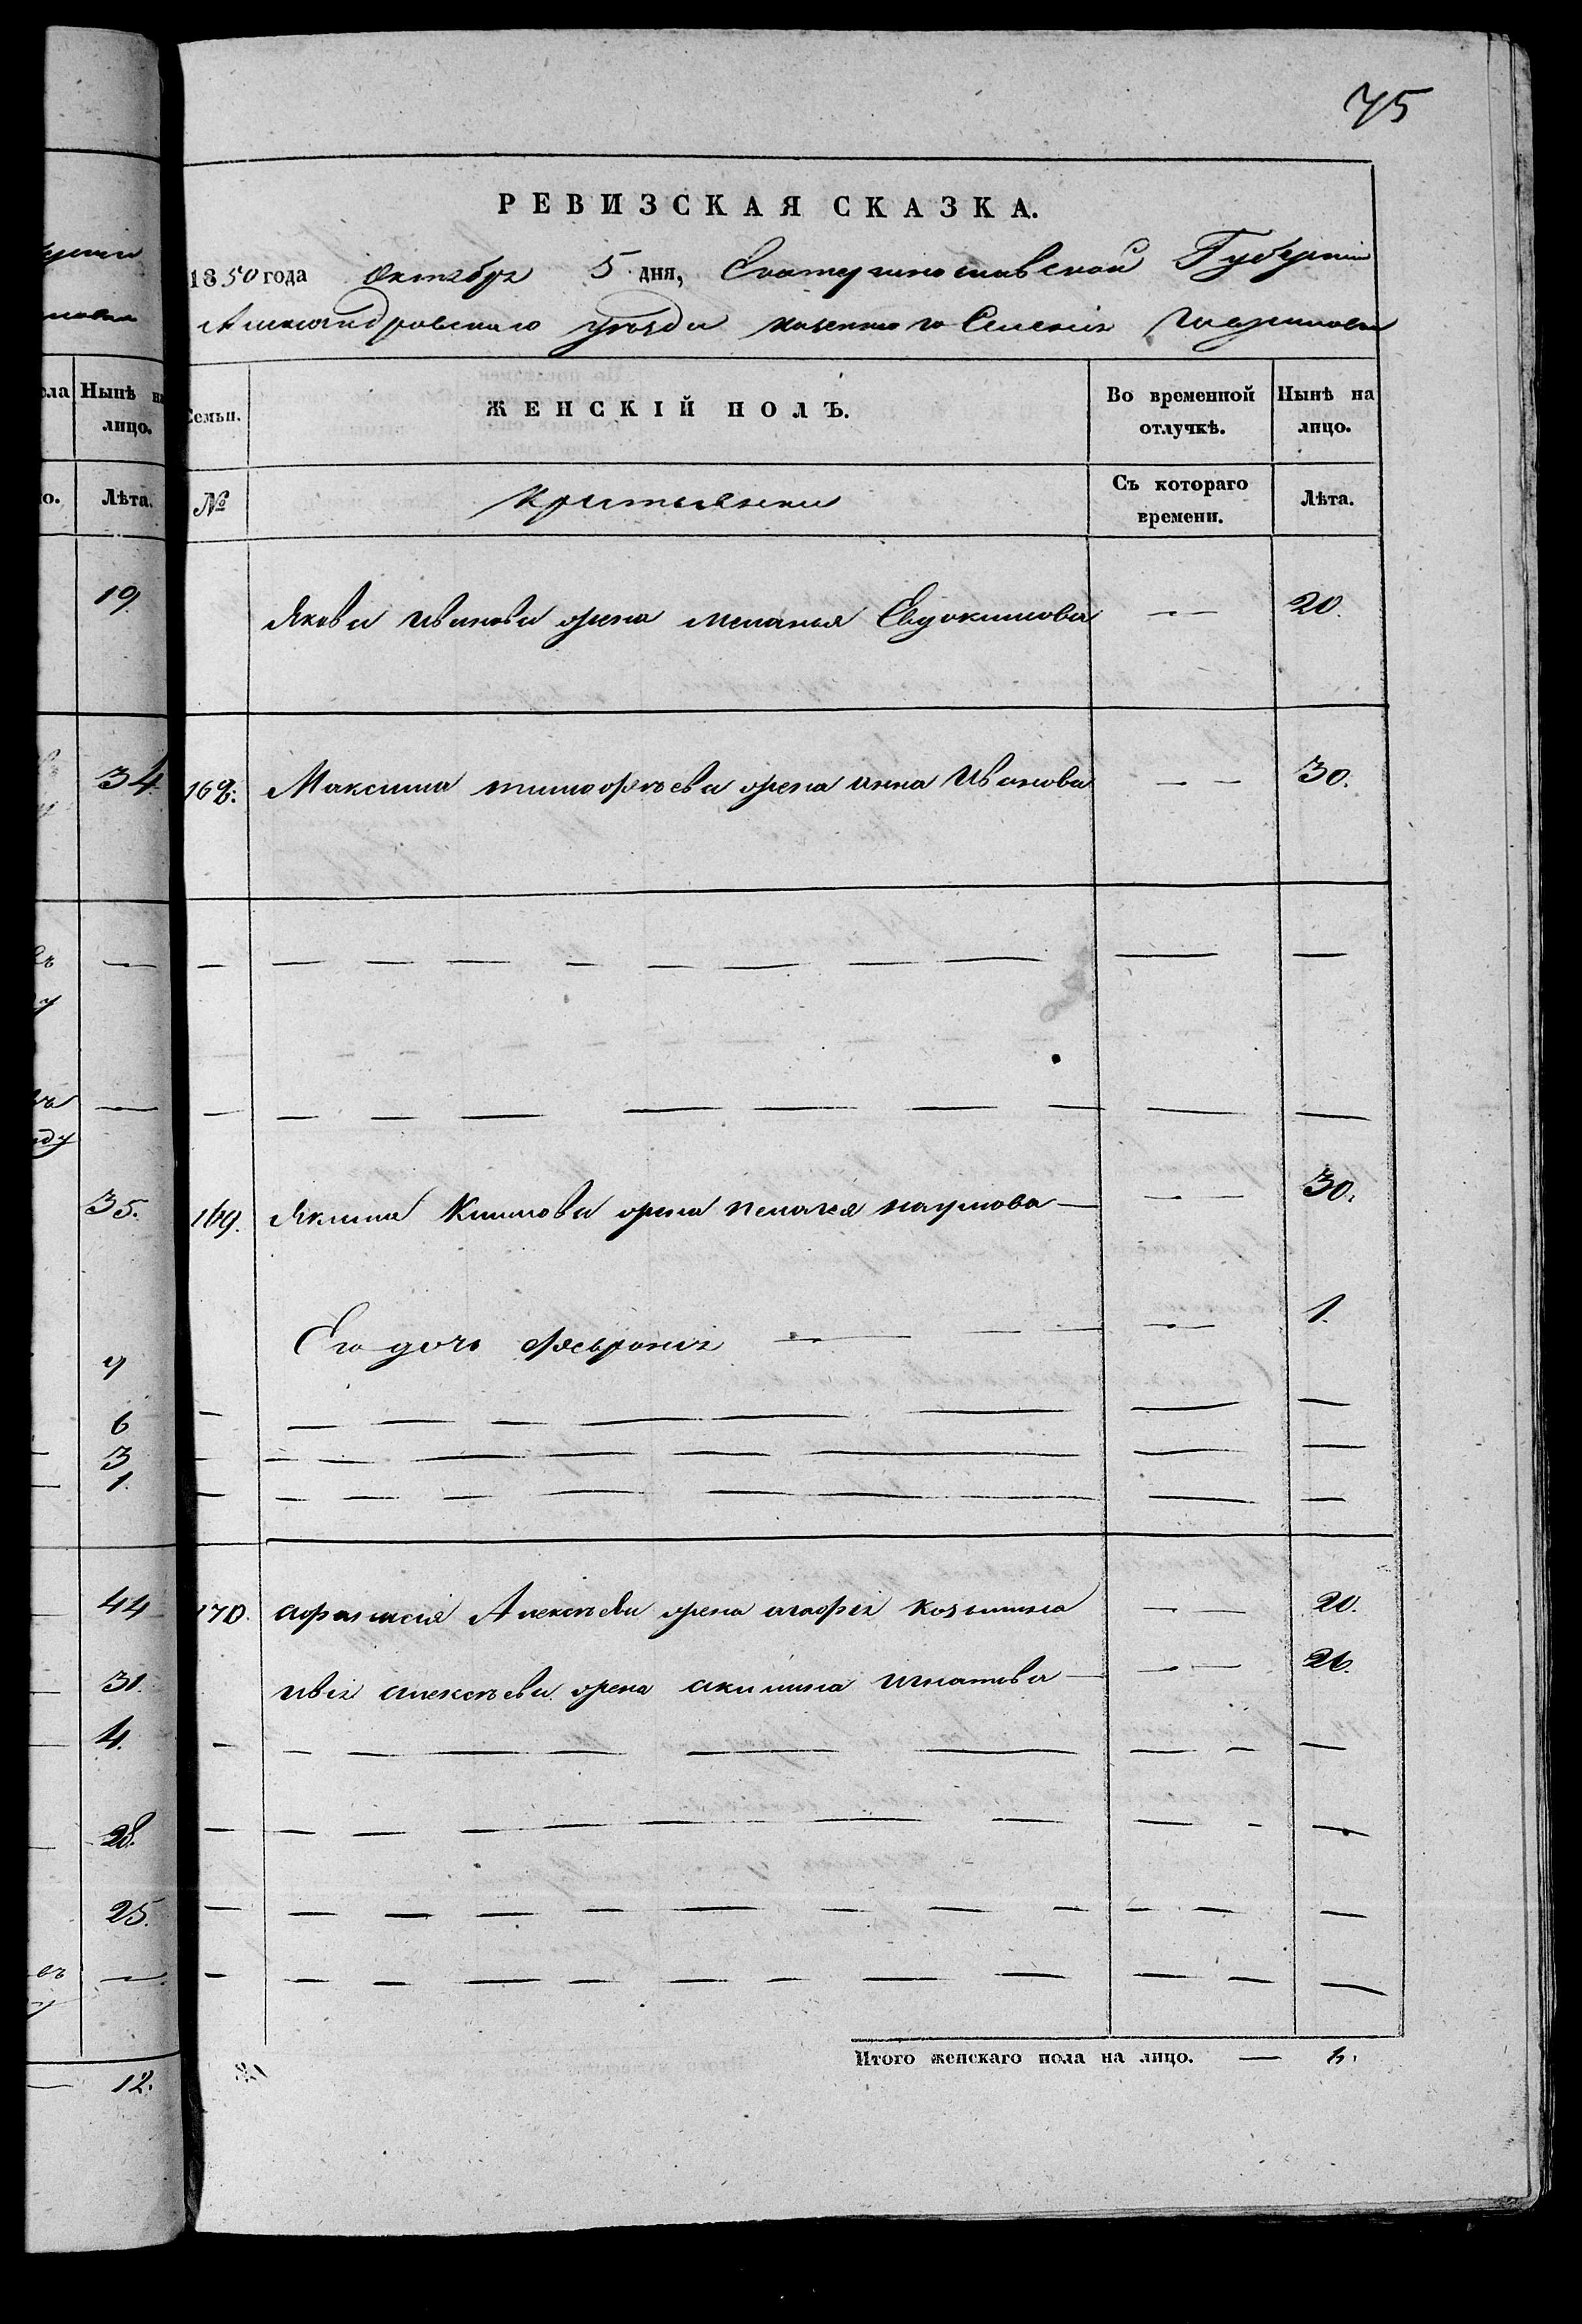 75
РЕВИЗСКАЯ СКАЗКА.
1850 года Октября 5 дня, Екатеринославской Губернии
Александровского уезда казенного Селения
Семьи. ЖЕНСКІЙ ПОЛЪ. Во временной отлучкѣ. Нынѣ на лицо.
№ Крестьянки Съ котораго времени. Лѣта.
Якова Иванова жена меланья Евдокимова — — 20.
168. Максима тимофѣева жена анна Иванова — — 30.
169. Якима Климова жена пелагея наумова — — — 30.
Его дочь Феврония — — — — 1.
170. афанасия Алексѣева жена агафия козьмина — — 20.
ивля алексѣева жена акилина игнатова — — —
Итого женскаго пола на лицо. —
Нынѣ на лицо.
Лѣта.
19
34.
—
—
35.
9
6
3
1.
44
31.
4.
28.
25.
—
12.